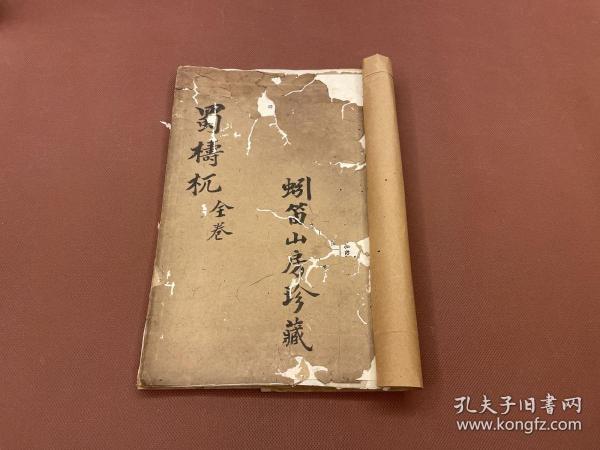 蜀檮杌
全卷
蚓笛山房珍藏
孔夫子旧书网
www.kongfz.com